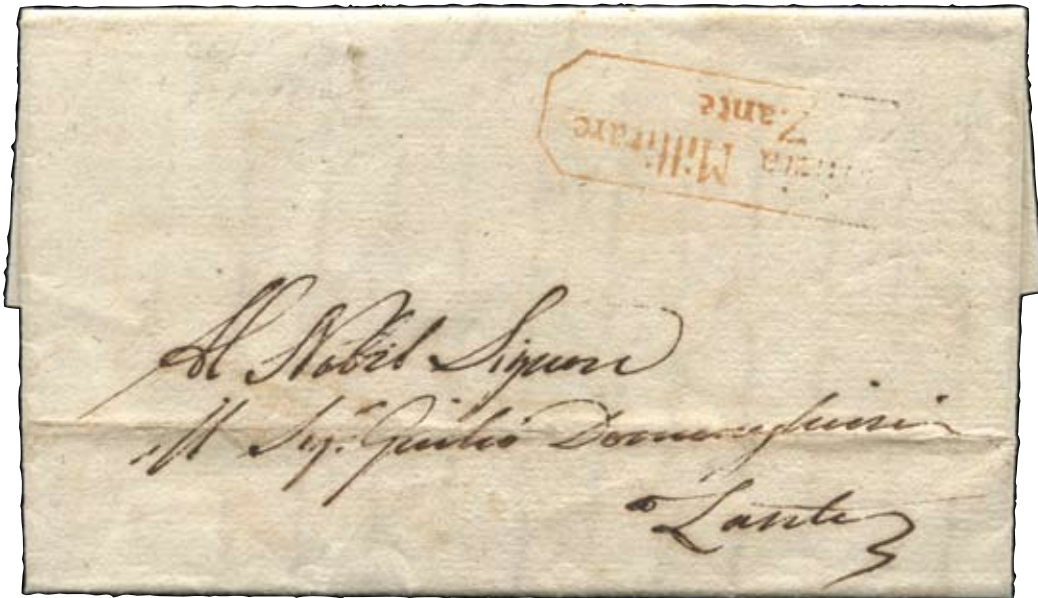 Millitare
Zante
Al Nobil Signore
Il Sigr. Giulio Domeneghini
Zante